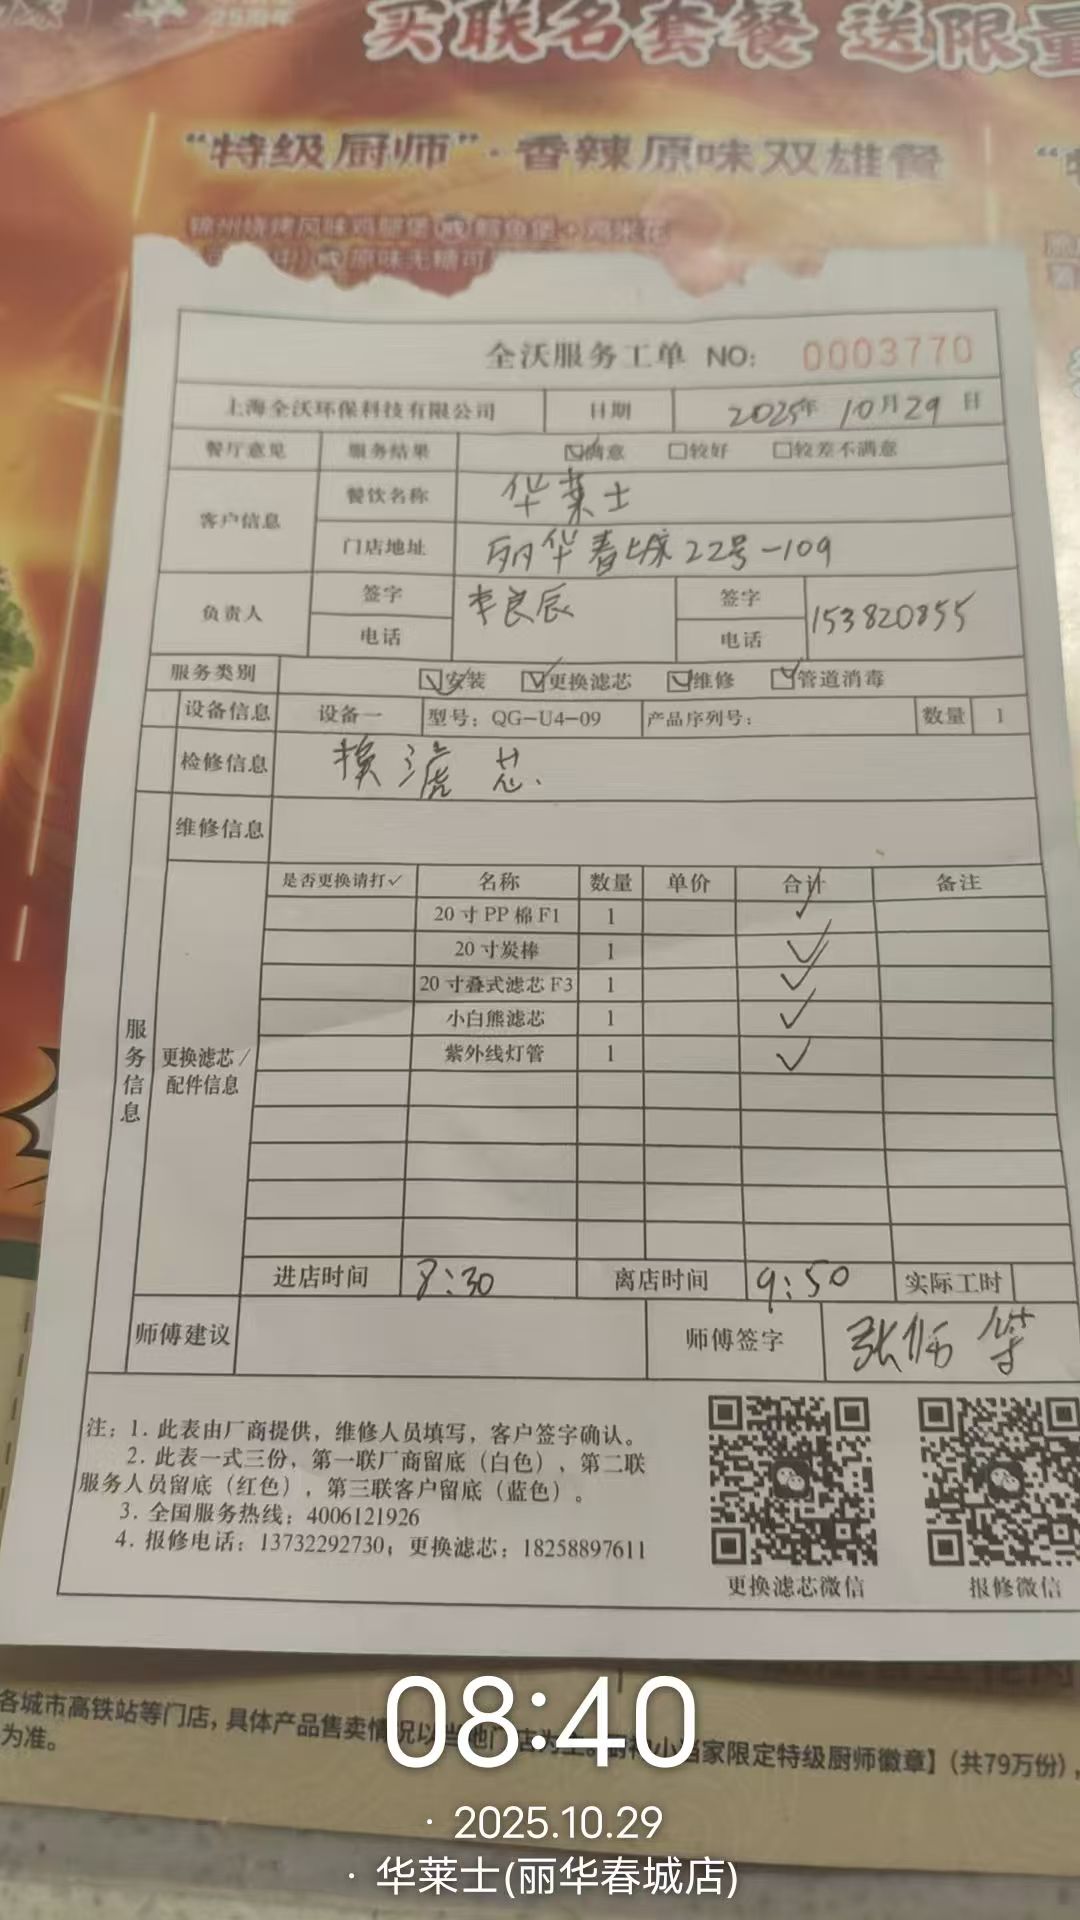 25周年
买联名套餐 送限量
“特级厨师”·香辣原味双雄餐
锦州烧烤风味鸡腿堡 或 鳕鱼堡+鸡米花
中) 或 原味无糖可
全沃服务工单 NO: 0003770
上海全沃环保科技有限公司 日期 2025年 10月29日
餐厅意见 服务结果 ☑满意 □较好 □较差不满意
客户信息 餐饮名称 华莱士
门店地址 丽华春城22号-109
负责人 签字 李良辰 签字 153820855
电话 电话
服务类别 ☑安装 ☑更换滤芯 ☑维修 ☑管道消毒
设备信息 设备一 型号: QG-U4-09 产品序列号: 数量 1
检修信息 换滤芯.
维修信息
是否更换请打✓ 名称 数量 单价 合计 备注
20寸PP棉F1 1 ✓
20寸炭棒 1 ✓
20寸叠式滤芯F3 1 ✓
小白熊滤芯 1 ✓
紫外线灯管 1 ✓
服务信息
更换滤芯/
配件信息
进店时间 8:30 离店时间 9:50 实际工时
师傅建议 师傅签字 张伍
注: 1. 此表由厂商提供，维修人员填写，客户签字确认。
2. 此表一式三份，第一联厂商留底（白色），第二联
服务人员留底（红色），第三联客户留底（蓝色）。
3. 全国服务热线: 4006121926
4. 报修电话: 13732292730; 更换滤芯: 18258897611
更换滤芯微信 报修微信
各城市高铁站等门店，具体产品售卖情况以当地门店为
小当家限定特级厨师徽章】(共79万份),
为准。
08:40
· 2025.10.29
· 华莱士(丽华春城店)